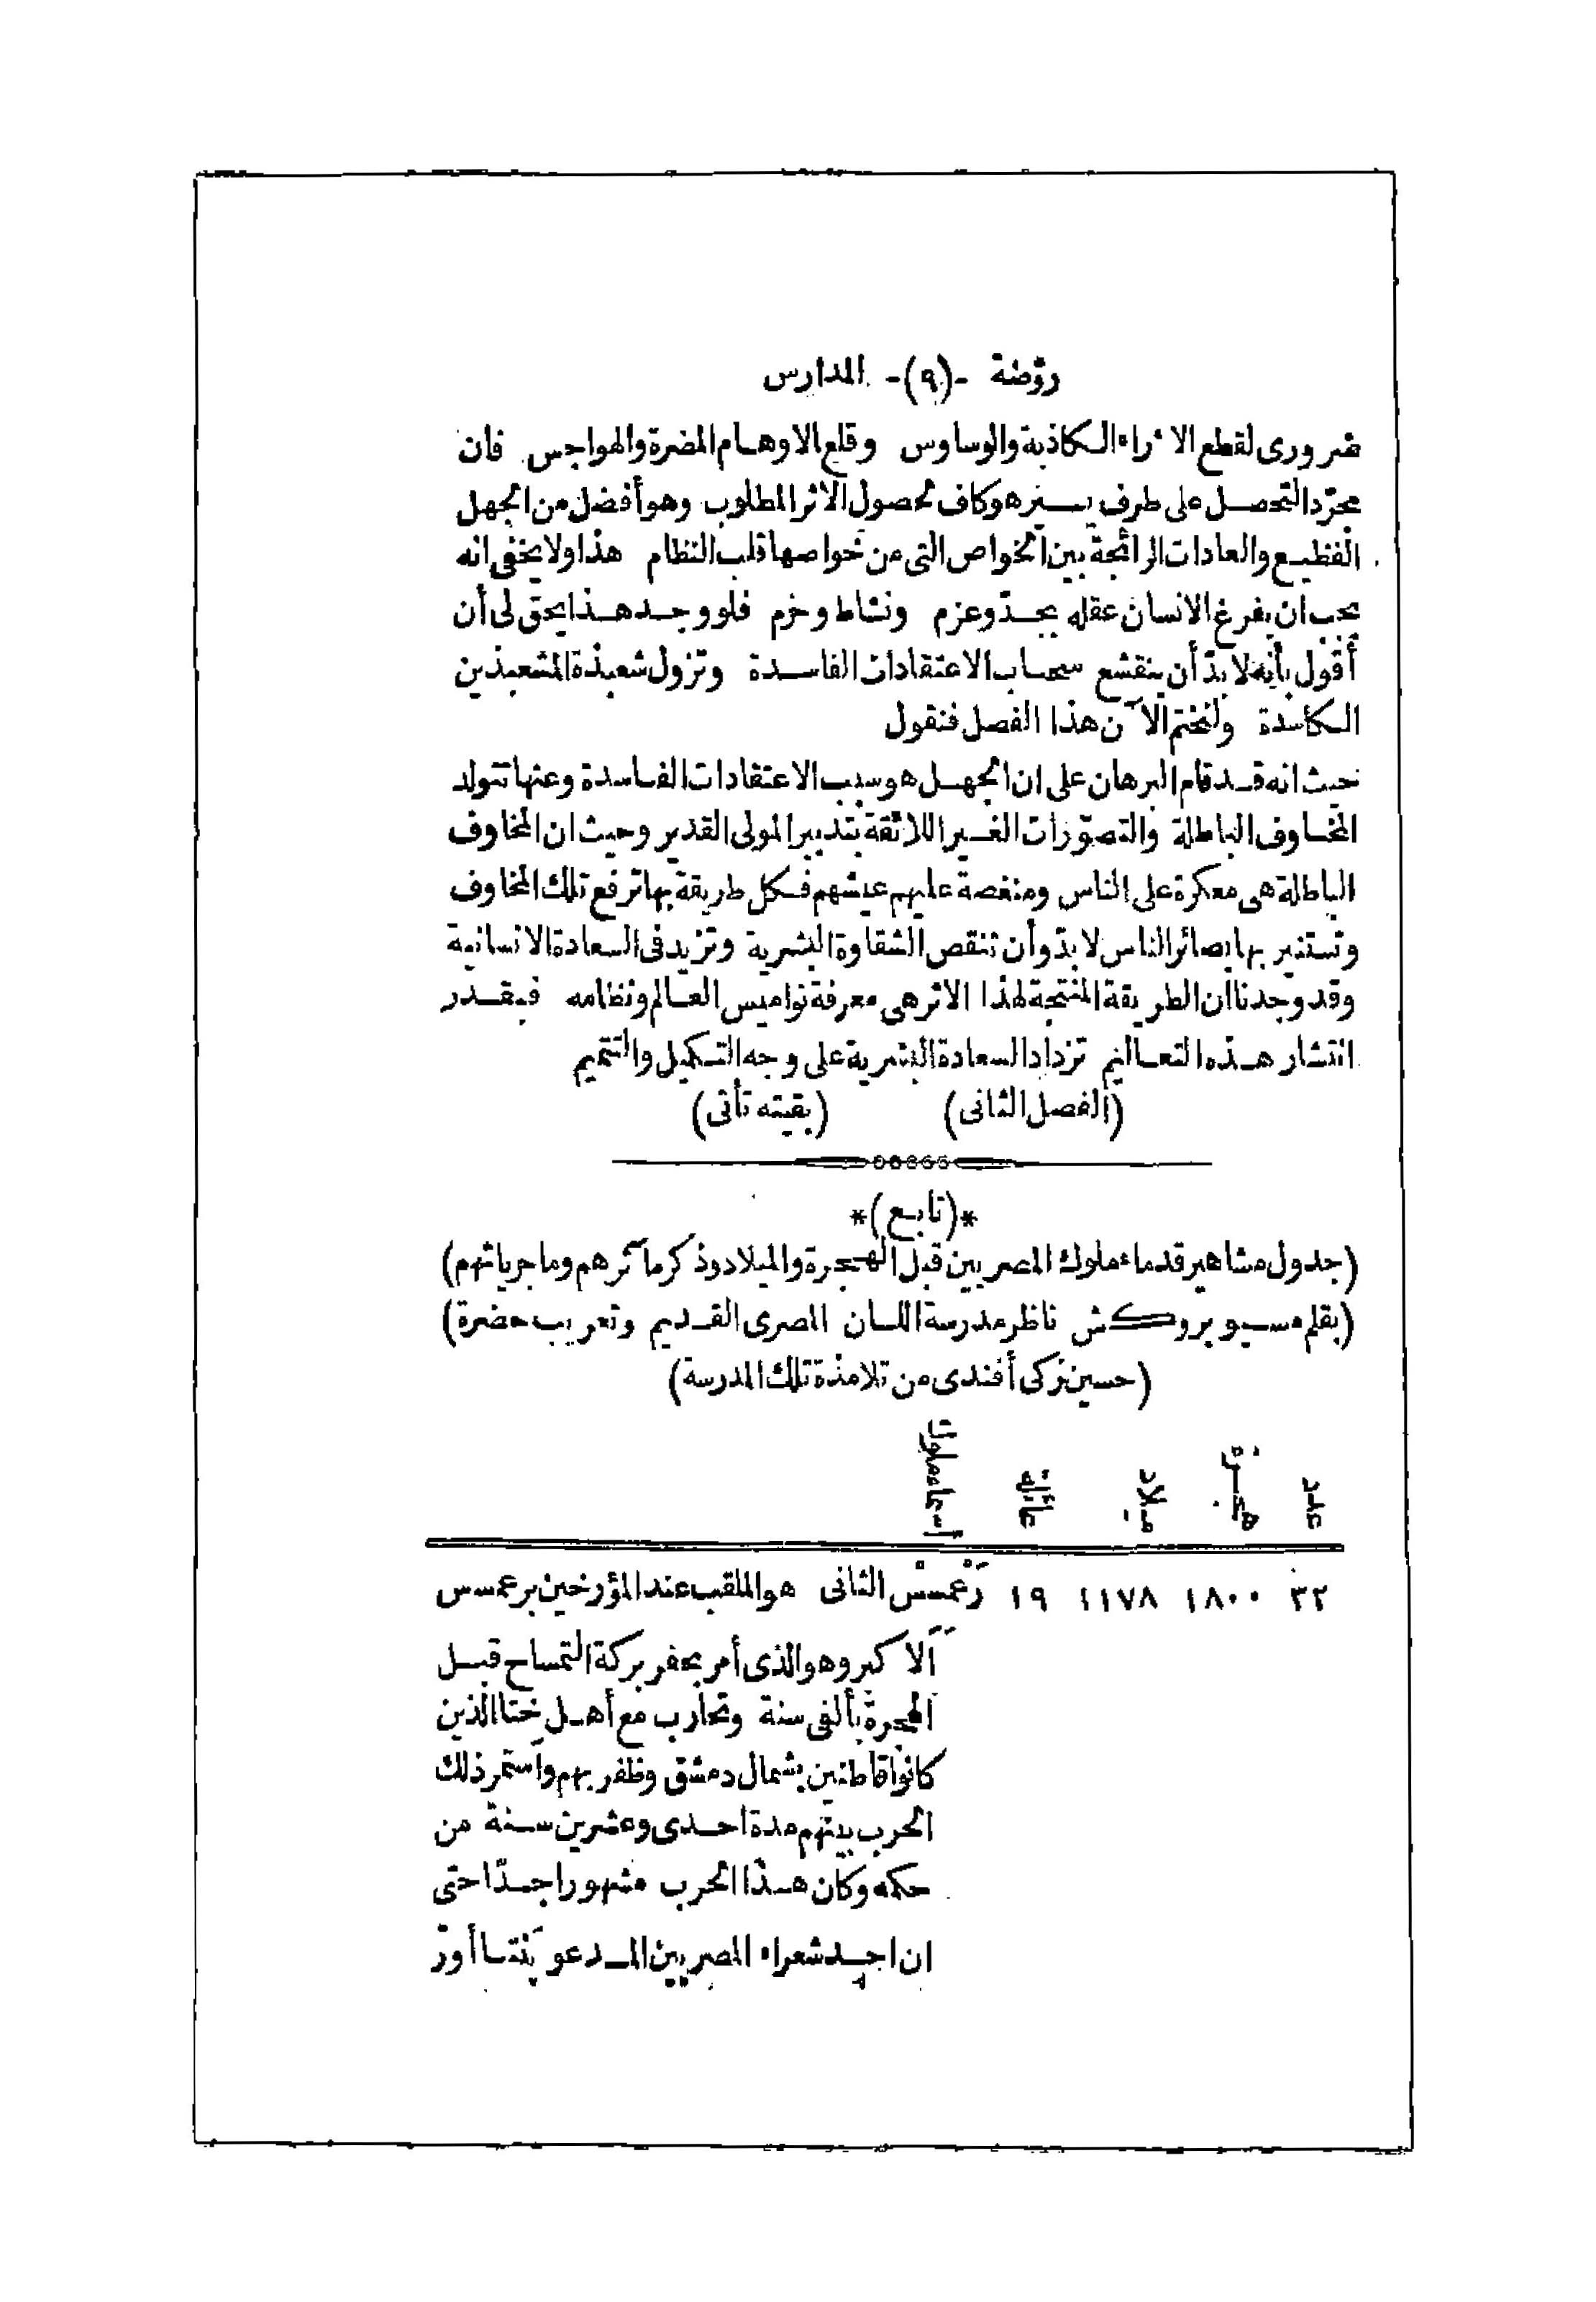 روضة -(٩)- المدارس
ضرورى لقطع الآراء الكاذبة والوساوس وقلع الاوهام المضرة والهواجس فان
مجرّد التحصل على طرف يسير هو كاف لحصول الاثر المطلوب وهو أفضل من الجهل
الفظيع والعادات الرائجة بين الخواص التى من خواصها قلب النظام هذا ولا يخفى انه
يجب ان يفرغ الانسان عقله بجدّ وعزم ونشاط وحزم فلو وجد هذا يحق لى أن
أقول بأنه لا بدّ أن ينقشع سحاب الاعتقادات الفاسدة وتزول شعبذة المشعبذين
الكاسدة ولنختم الآن هذا الفصل فنقول
حيث انه قد قام البرهان على ان الجهل هو سبب الاعتقادات الفاسدة وعنها تتولد
المخاوف الباطلة والتصوّرات الغير اللائقة بتدبير المولى القدير وحيث ان المخاوف
الباطلة هى معكرة على الناس ومنغصة عليهم عيشهم فكل طريقة بها ترفع تلك المخاوف
وتستنير بها بصائر الناس لا بدّ وأن تنقص الشقاوة البشرية وتزيد فى السعادة الانسانية
وقد وجدنا ان الطريقة المنتجة لهذا الاثر هى معرفة نواميس العالم ونظامه فبقدر
انتشار هذه التعاليم تزداد السعادة البشرية على وجه التكميل والتتميم
(الفصل الثانى) (بقيته تأتى)
*(تابع)*
(جدول مشاهير قدماء ملوك المصريين قبل الهجرة والميلاد وذكر مآثرهم وماجرياتهم)
(بقلم مسيو بروكش ناظر مدرسة اللسان المصرى القديم وتعريب حضرة)
(حسين زكى أفندى من تلامذة تلك المدرسة)
عدد هجرة ميلاد عائلة أسماء ملوك
٣٢ ١٨٠٠ ١١٧٨ ١٩ رَعْمسسْ الثانى هو الملقب عند المؤرخين برعمسس
الاكبر وهو الذى أمر بحفر بركة التمساح قبل
الهجرة بألفى سنة وتحارب مع أهل ختا الذين
كانوا قاطنين بشمال دمشق وظفر بهم واستمر ذلك
الحرب بينهم مدة احدى وعشرين سنة من
حكمه وكان هذا الحرب مشهورا جدّا حتى
ان احد شعراء المصريين المدعو پَنْتاأورْ